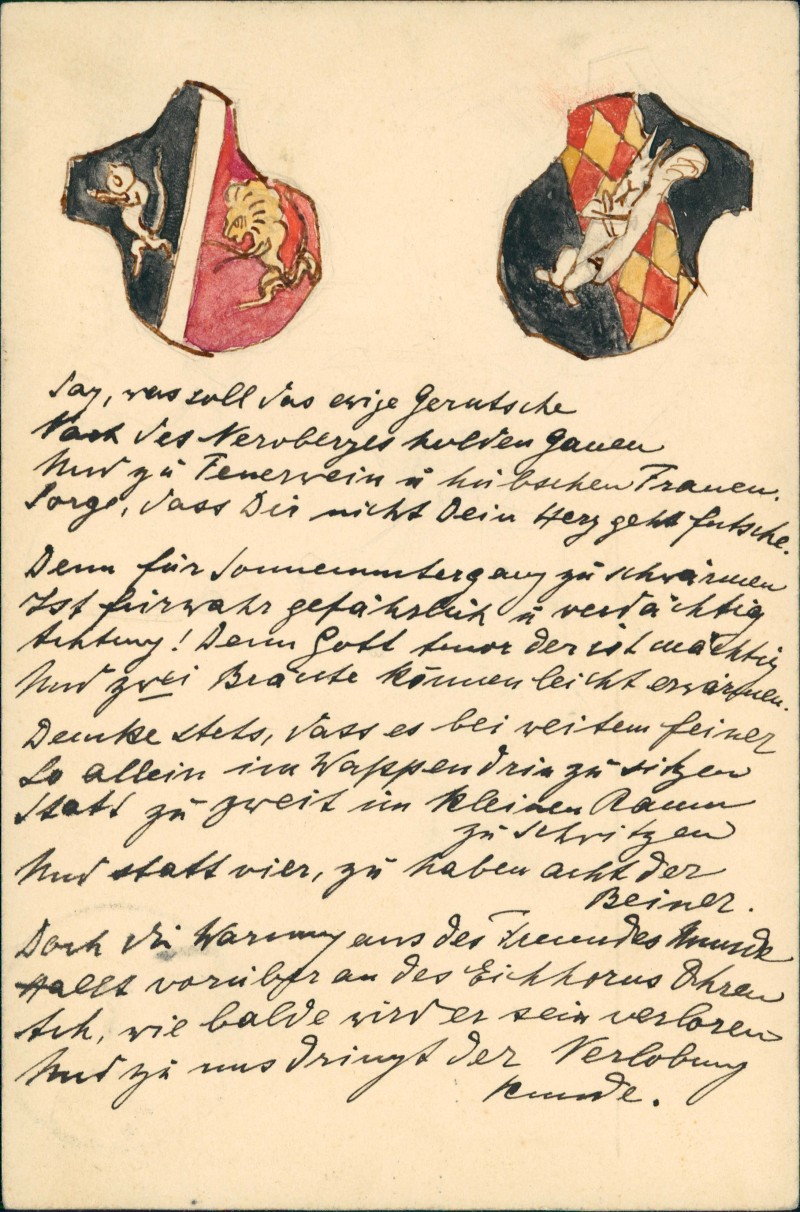 Sag, was soll das ewige Gerutsche
Nach des Neroberges holden Gauen
Und zu Feuerwein u hübschen Frauen.
Sorge, dass Dir nicht Dein Herz geht futsche.
Denn für Sonnenuntergang zu schwärmen
Ist fürwahr gefährlich u verdächtig
Achtung! Denn Gott Amor der ist mächtig
Und zwei Bräute können leicht erwärmen.
Denke stets, dass es bei weitem feiner
So allein im Wappen drin zu sitzen
Statt zu zweit im kleinen Raum
zu schwitzen
Und statt vier, zu haben acht der
Beiner.
Doch die Warnung aus des Freundes Munde
Hallt vorüber an des Eichhorns Ohren
Ach, wie balde wird er sein verloren
Und zu uns dringt der Verlobung
Kunde.